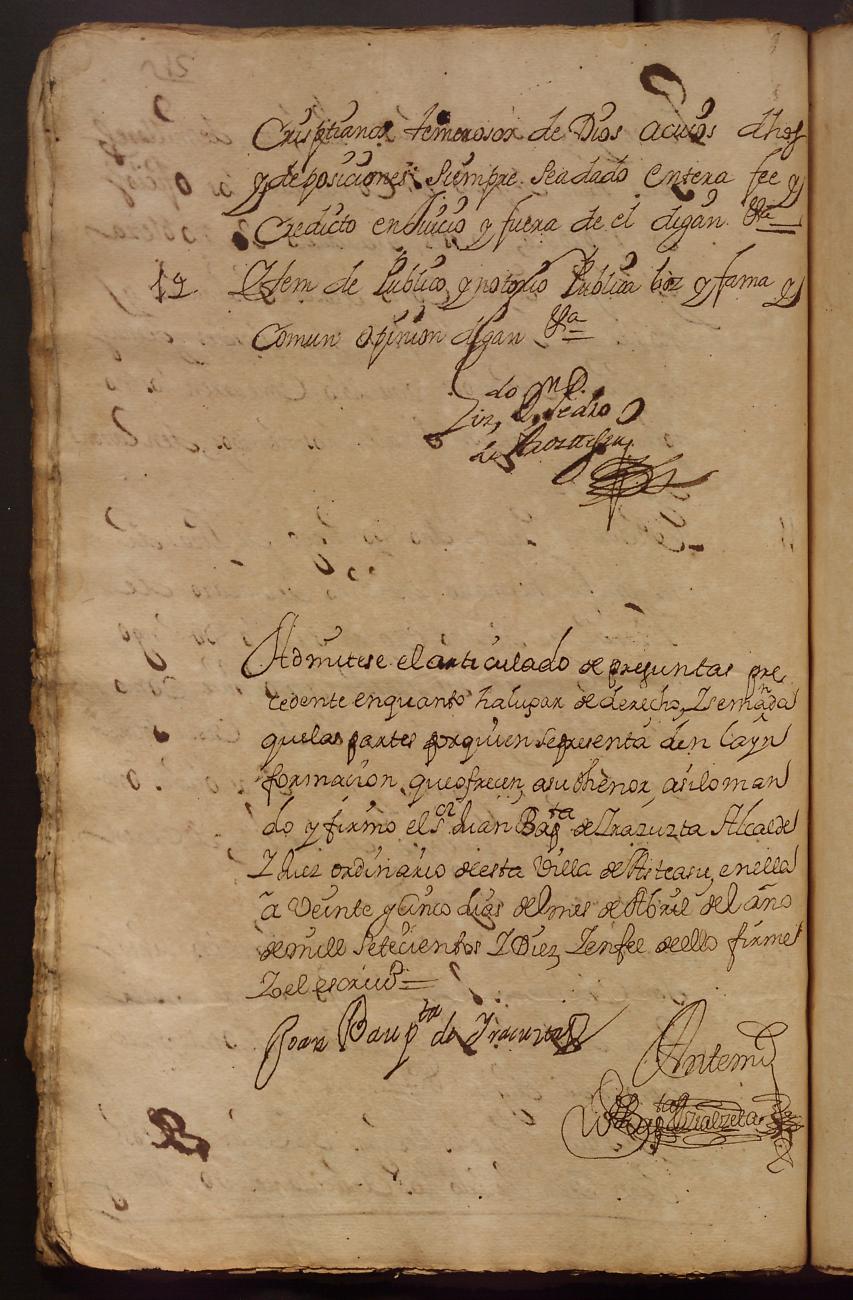 Cristianos temerosos de Dios acuios dhos
y deposiciones siempre seadado entera fee y
Credicto enJuicio y fuera de el digan &a
12 Ytem de Publico y notorio Publica boz y fama y
Comun opinion digan &a
do
Liz. D. Pedro
de
Admitese el articulado de preguntas pre
cedente enquanto halugar de derecho, Ysemãda
quelas partes porquien sepresenta den layn
formacion, queofrecen, asuthenor, asilo man
do y firmo el Sor Juan Bapta de Yrazuzta Alcalde
YJuez ordinario de esta Villa de Asteasu, enella
a Veinte y cinco dias del mes de Abril del año
de mill Setecientos YDiez, Yenfee de ello firme
Yo el escriuo =
Joan Baupta de Yracuzta
Antemi
Bapta